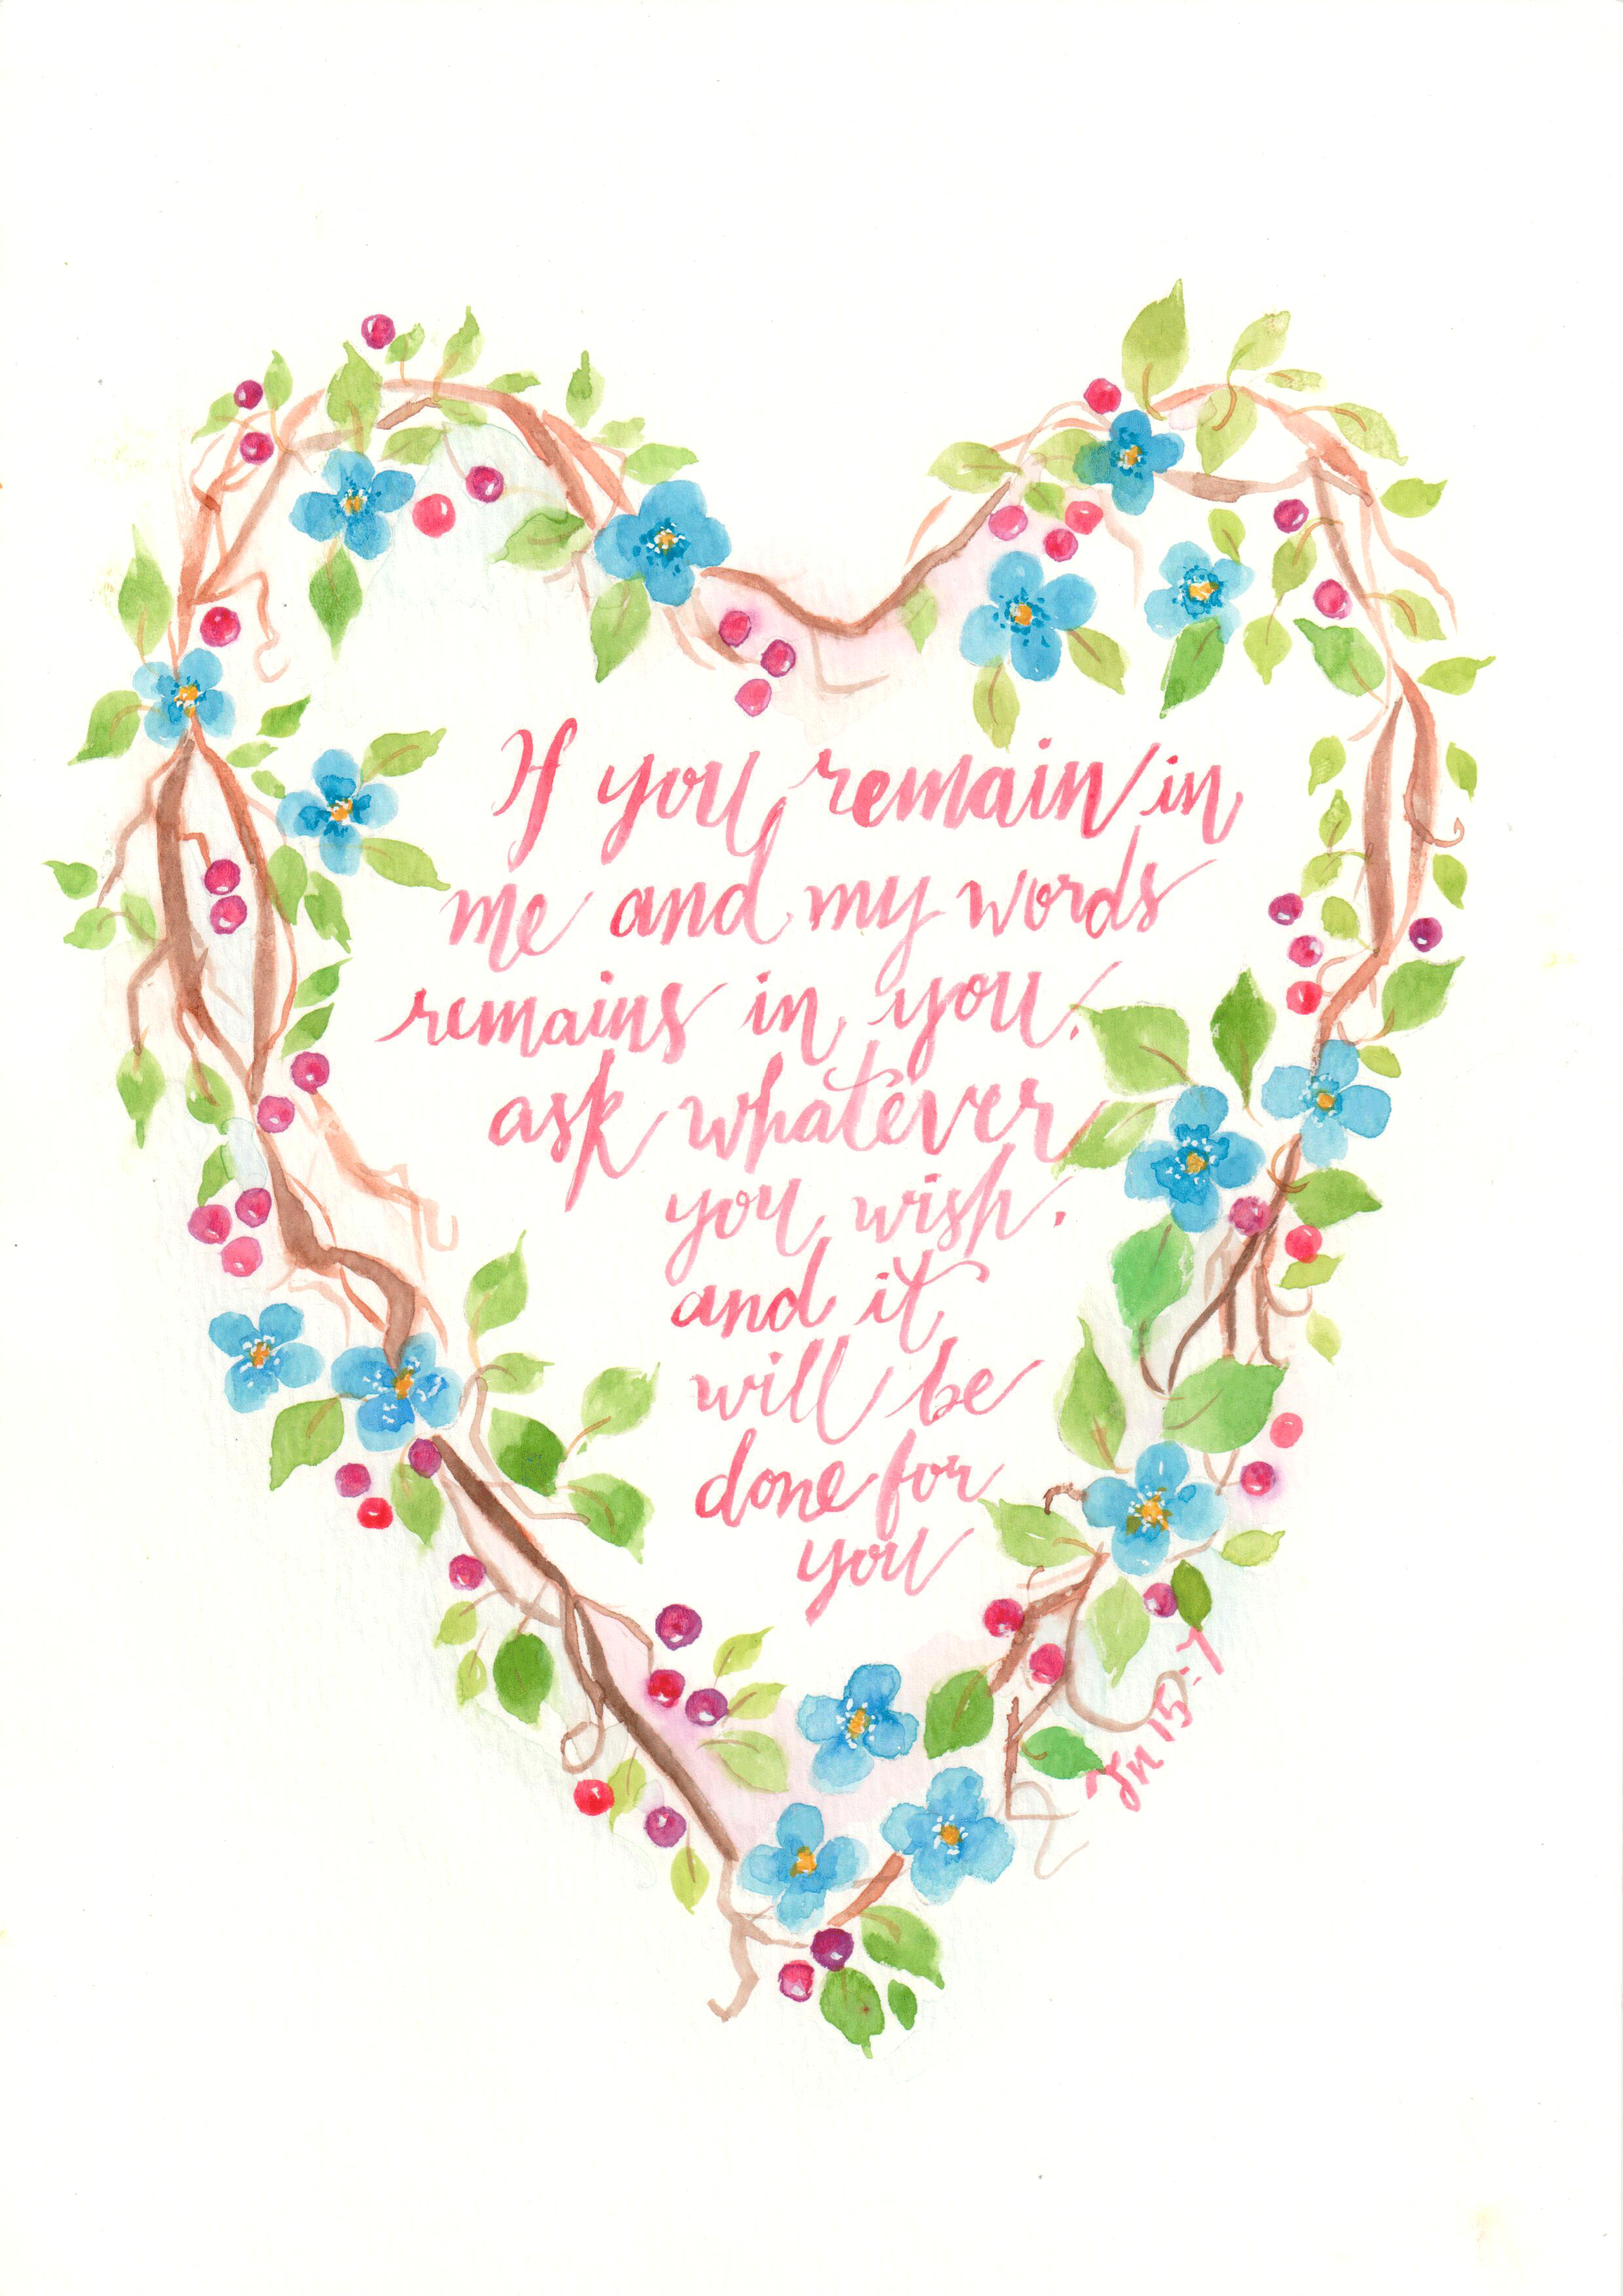 If you remain in
me and my words
remains in you,
ask whatever
you wish,
and it
will be
done for
you
Jn 15:7